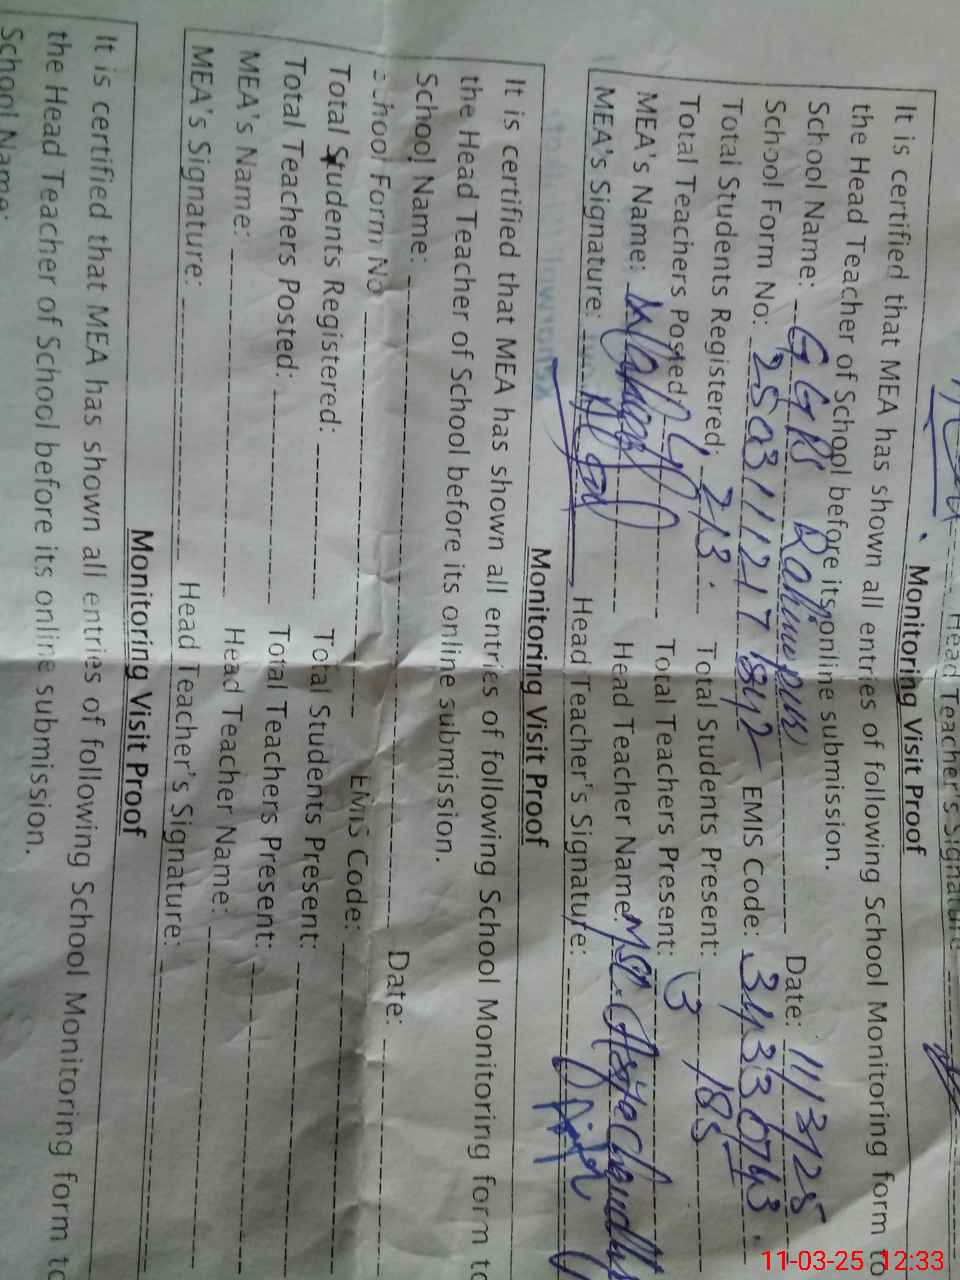 Head Teacher's Signature
Monitoring Visit Proof
It is certified that MEA has shown all entries of following School Monitoring form to
the Head Teacher of School before its online submission.
School Name: GGPS Rahimpur Date: 11/3/25
School Form No: 250311217842 EMIS Code: 34330743
Total Students Registered: 213 Total Students Present: 185
Total Teachers Posted: 4 Total Teachers Present: 3
MEA's Name: Head Teacher Name: Mst.
MEA's Signature: Head Teacher's Signature:
Monitoring Visit Proof
It is certified that MEA has shown all entries of following School Monitoring form to
the Head Teacher of School before its online submission.
School Name: Date:
School Form No EMIS Code:
Total Students Registered: Total Students Present:
Total Teachers Posted: Total Teachers Present:
MEA's Name: Head Teacher Name:
MEA's Signature: Head Teacher's Signature:
Monitoring Visit Proof
It is certified that MEA has shown all entries of following School Monitoring form to
the Head Teacher of School before its online submission.
School Name:
11-03-25 12:33